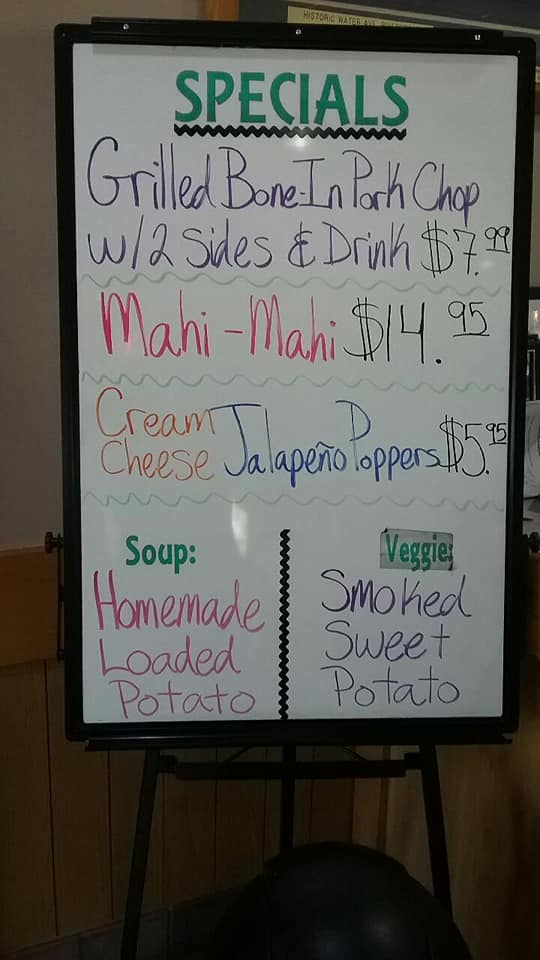 HISTORIC WATER AVE.
SPECIALS
Grilled Bone-In Pork Chop
w/2 Sides & Drink $7.99
Mahi-Mahi $14.95
Cream
Cheese Jalapeño Poppers $5.95
Soup:
Homemade
Loaded
Potato
Veggie:
Smoked
Sweet
Potato